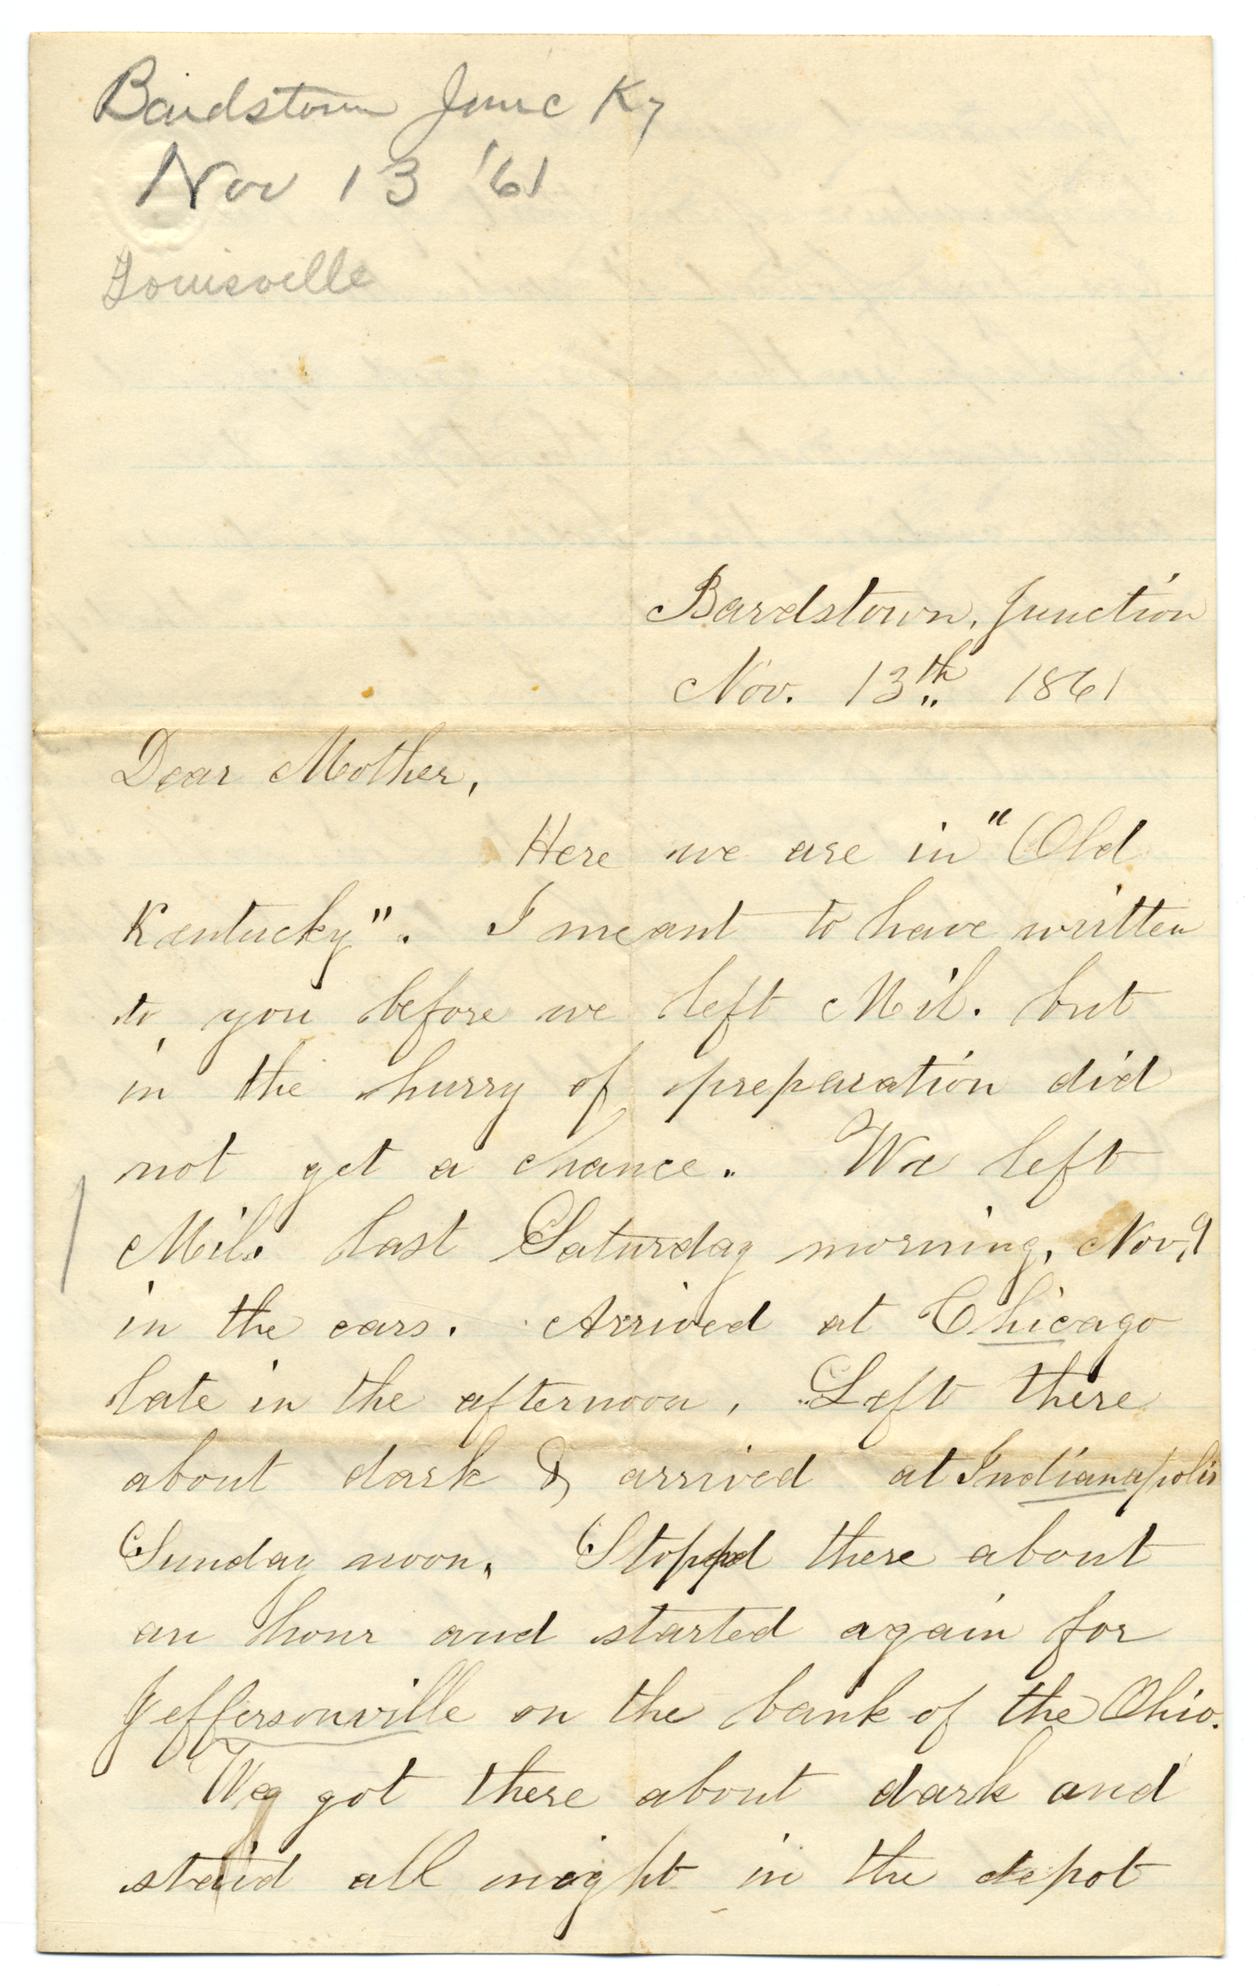 Bardstown Junc Ky
Nov 13 '61
Louisville
Bardstown, Junction
Nov. 13th 1861
Dear Mother,
Here we are in "Old
Kentucky". I meant to have written
to you before we left Mil. but
in the hurry of preparation did
not get a chance. We left
Mil. last Saturday morning, Nov. 9
in the cars. Arrived at Chicago
late in the afternoon. Left there
about dark & arrived at Indianapolis
Sunday noon. Stoppd there about
an hour and started again for
Jeffersonville on the bank of the Ohio.
We got there about dark and
staid all night in the depot